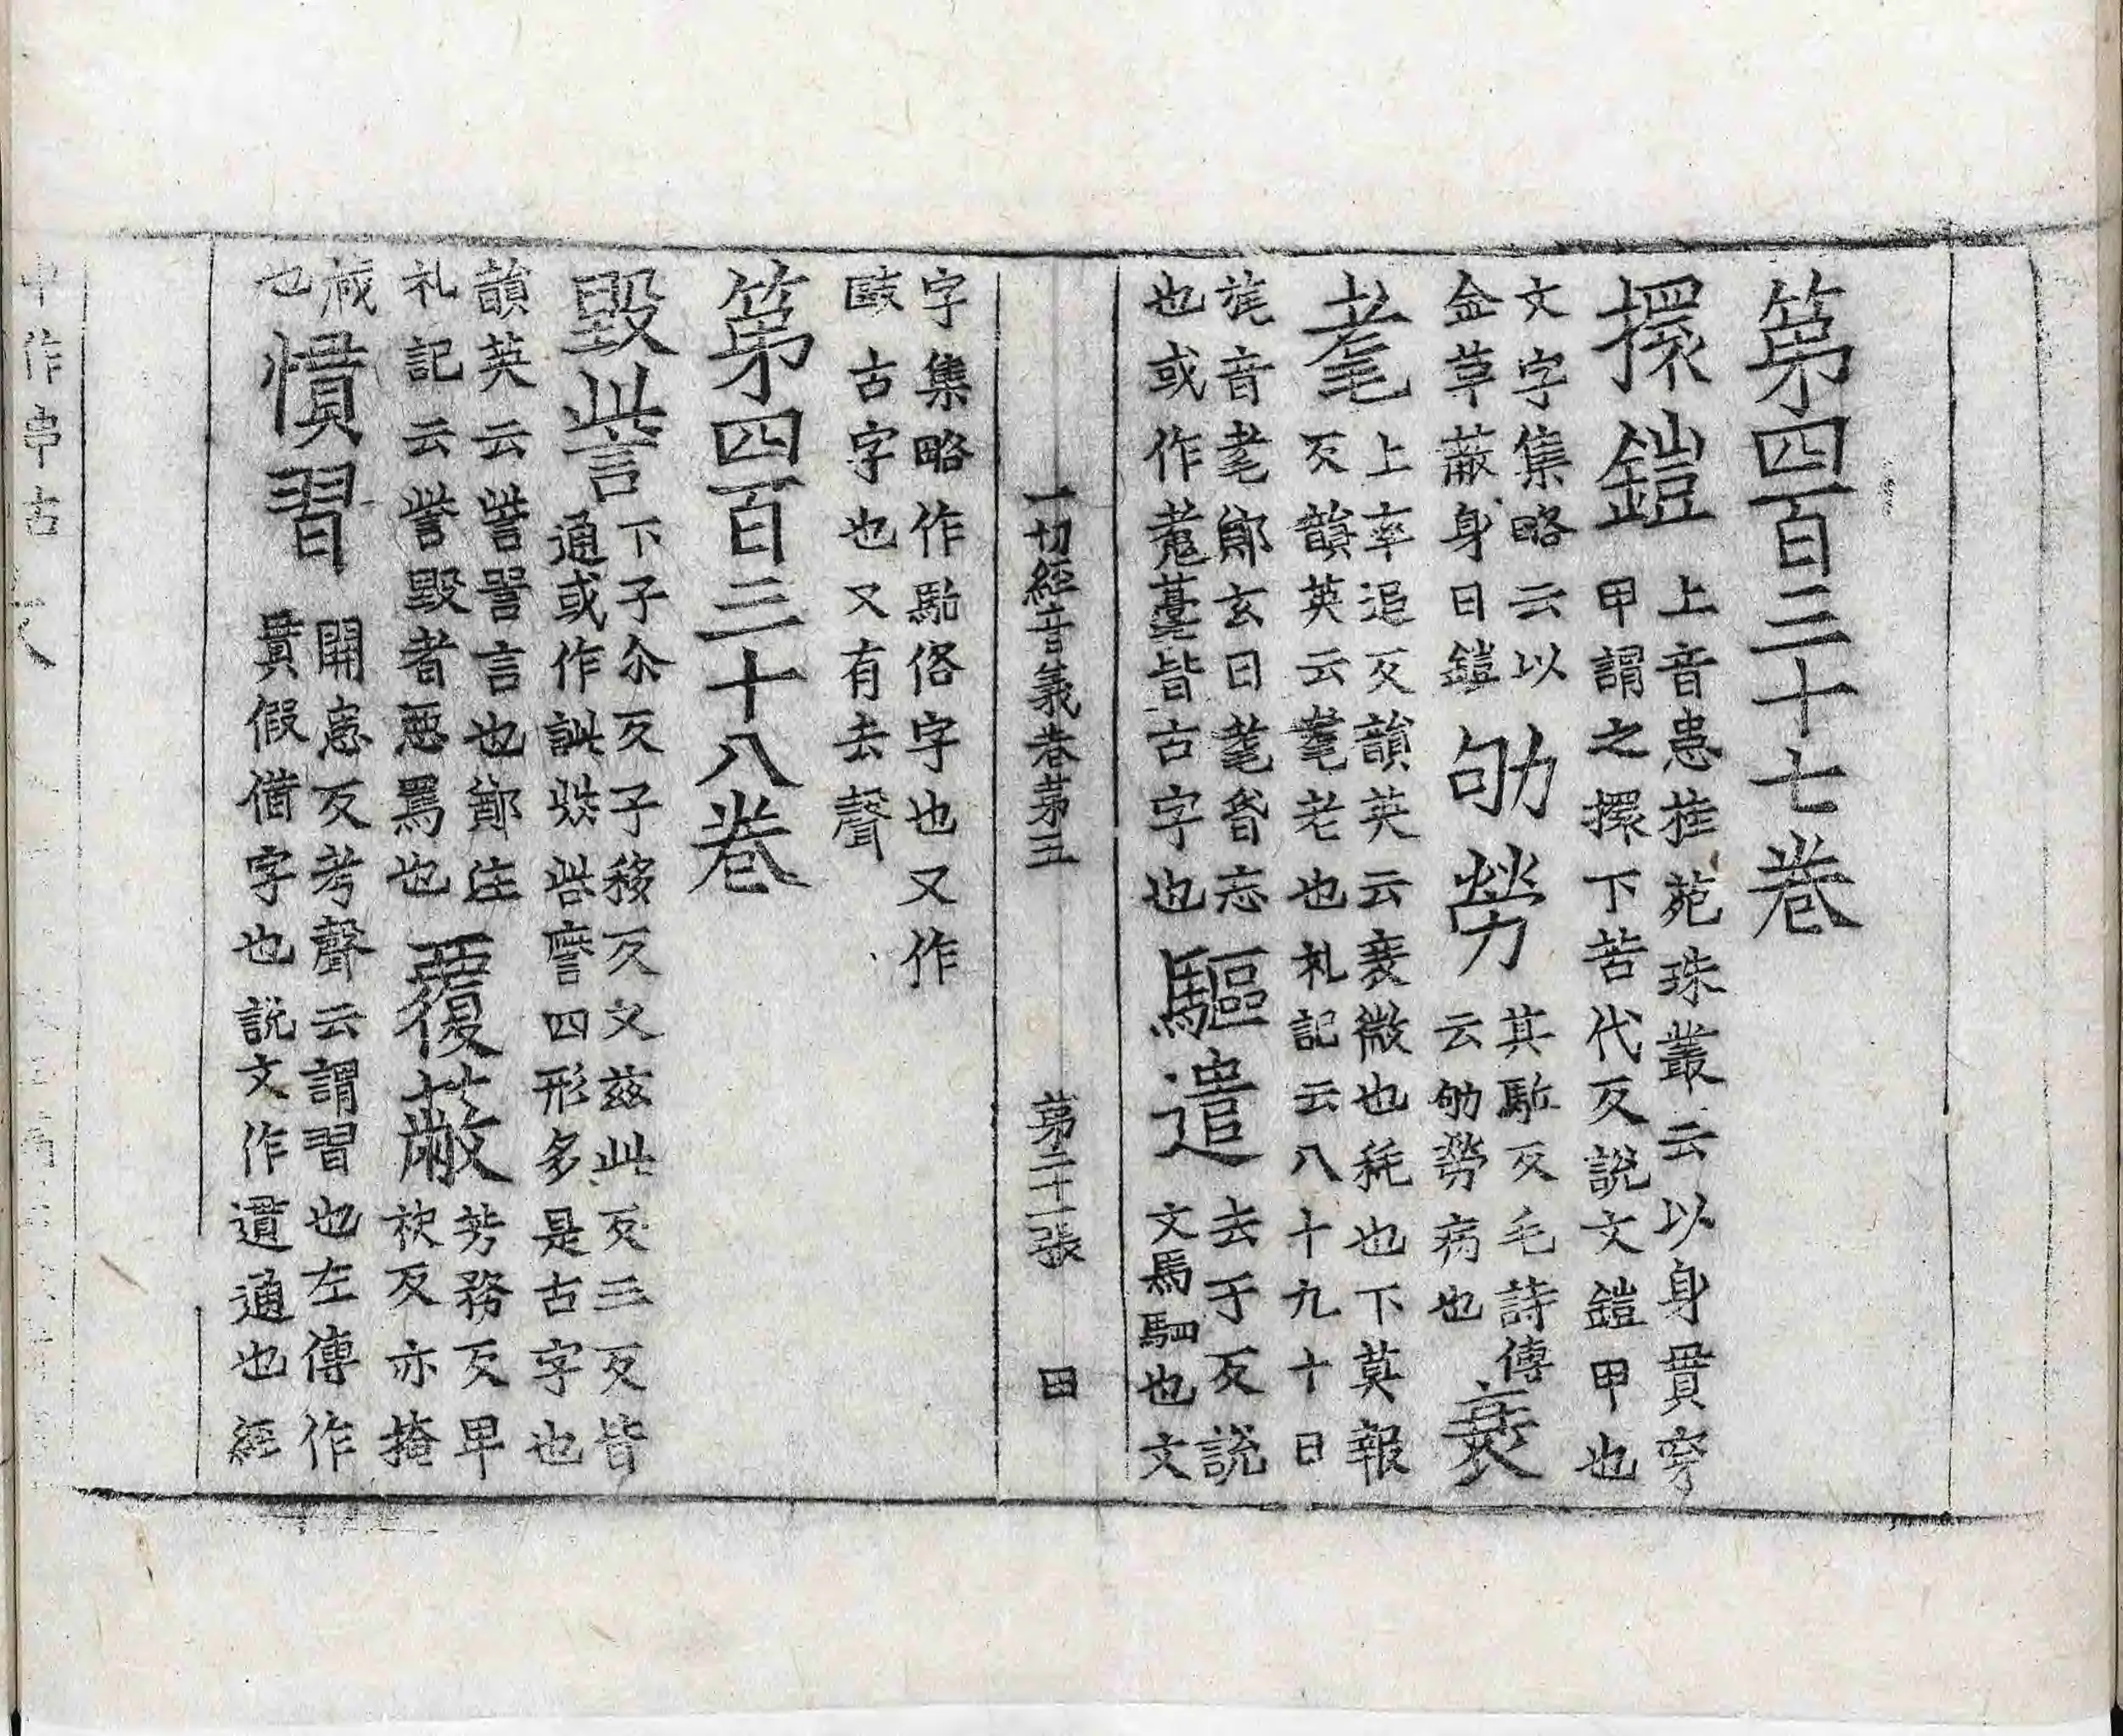 第四百三十七卷
擐鎧
上音患桂苑珠叢云以身貫穿
甲謂之擐下苦代反說文鎧甲也
文字集略云以
金草蔽身曰鎧
劬勞
其駈反毛詩傳
云劬勞病也
衰
耄
上率追反韻英云衰微也秏也下莫報
反韻英云耄老也礼記云八十九十日
旄音耄鄭玄曰耄昏忘
也或作皆古字也
驅遣
去于反說
文馬駈也文
一切經音義卷第五 第二十一張 曰
字集略作駈俗字也又作
敺古字也又有去聲
第四百三十八卷
毀訾
下子尒反子移反又茲此反三反皆
通或作訿呰四形多是古字也
韻英云訾詈言也鄭注
礼記云訾毀者惡罵也
覆蔽
芳務反畢
袂反亦掩
蔵
也
慣習
開患反考聲云謂習也左傳作
貫假借字也說文作遦通也經
中作串古